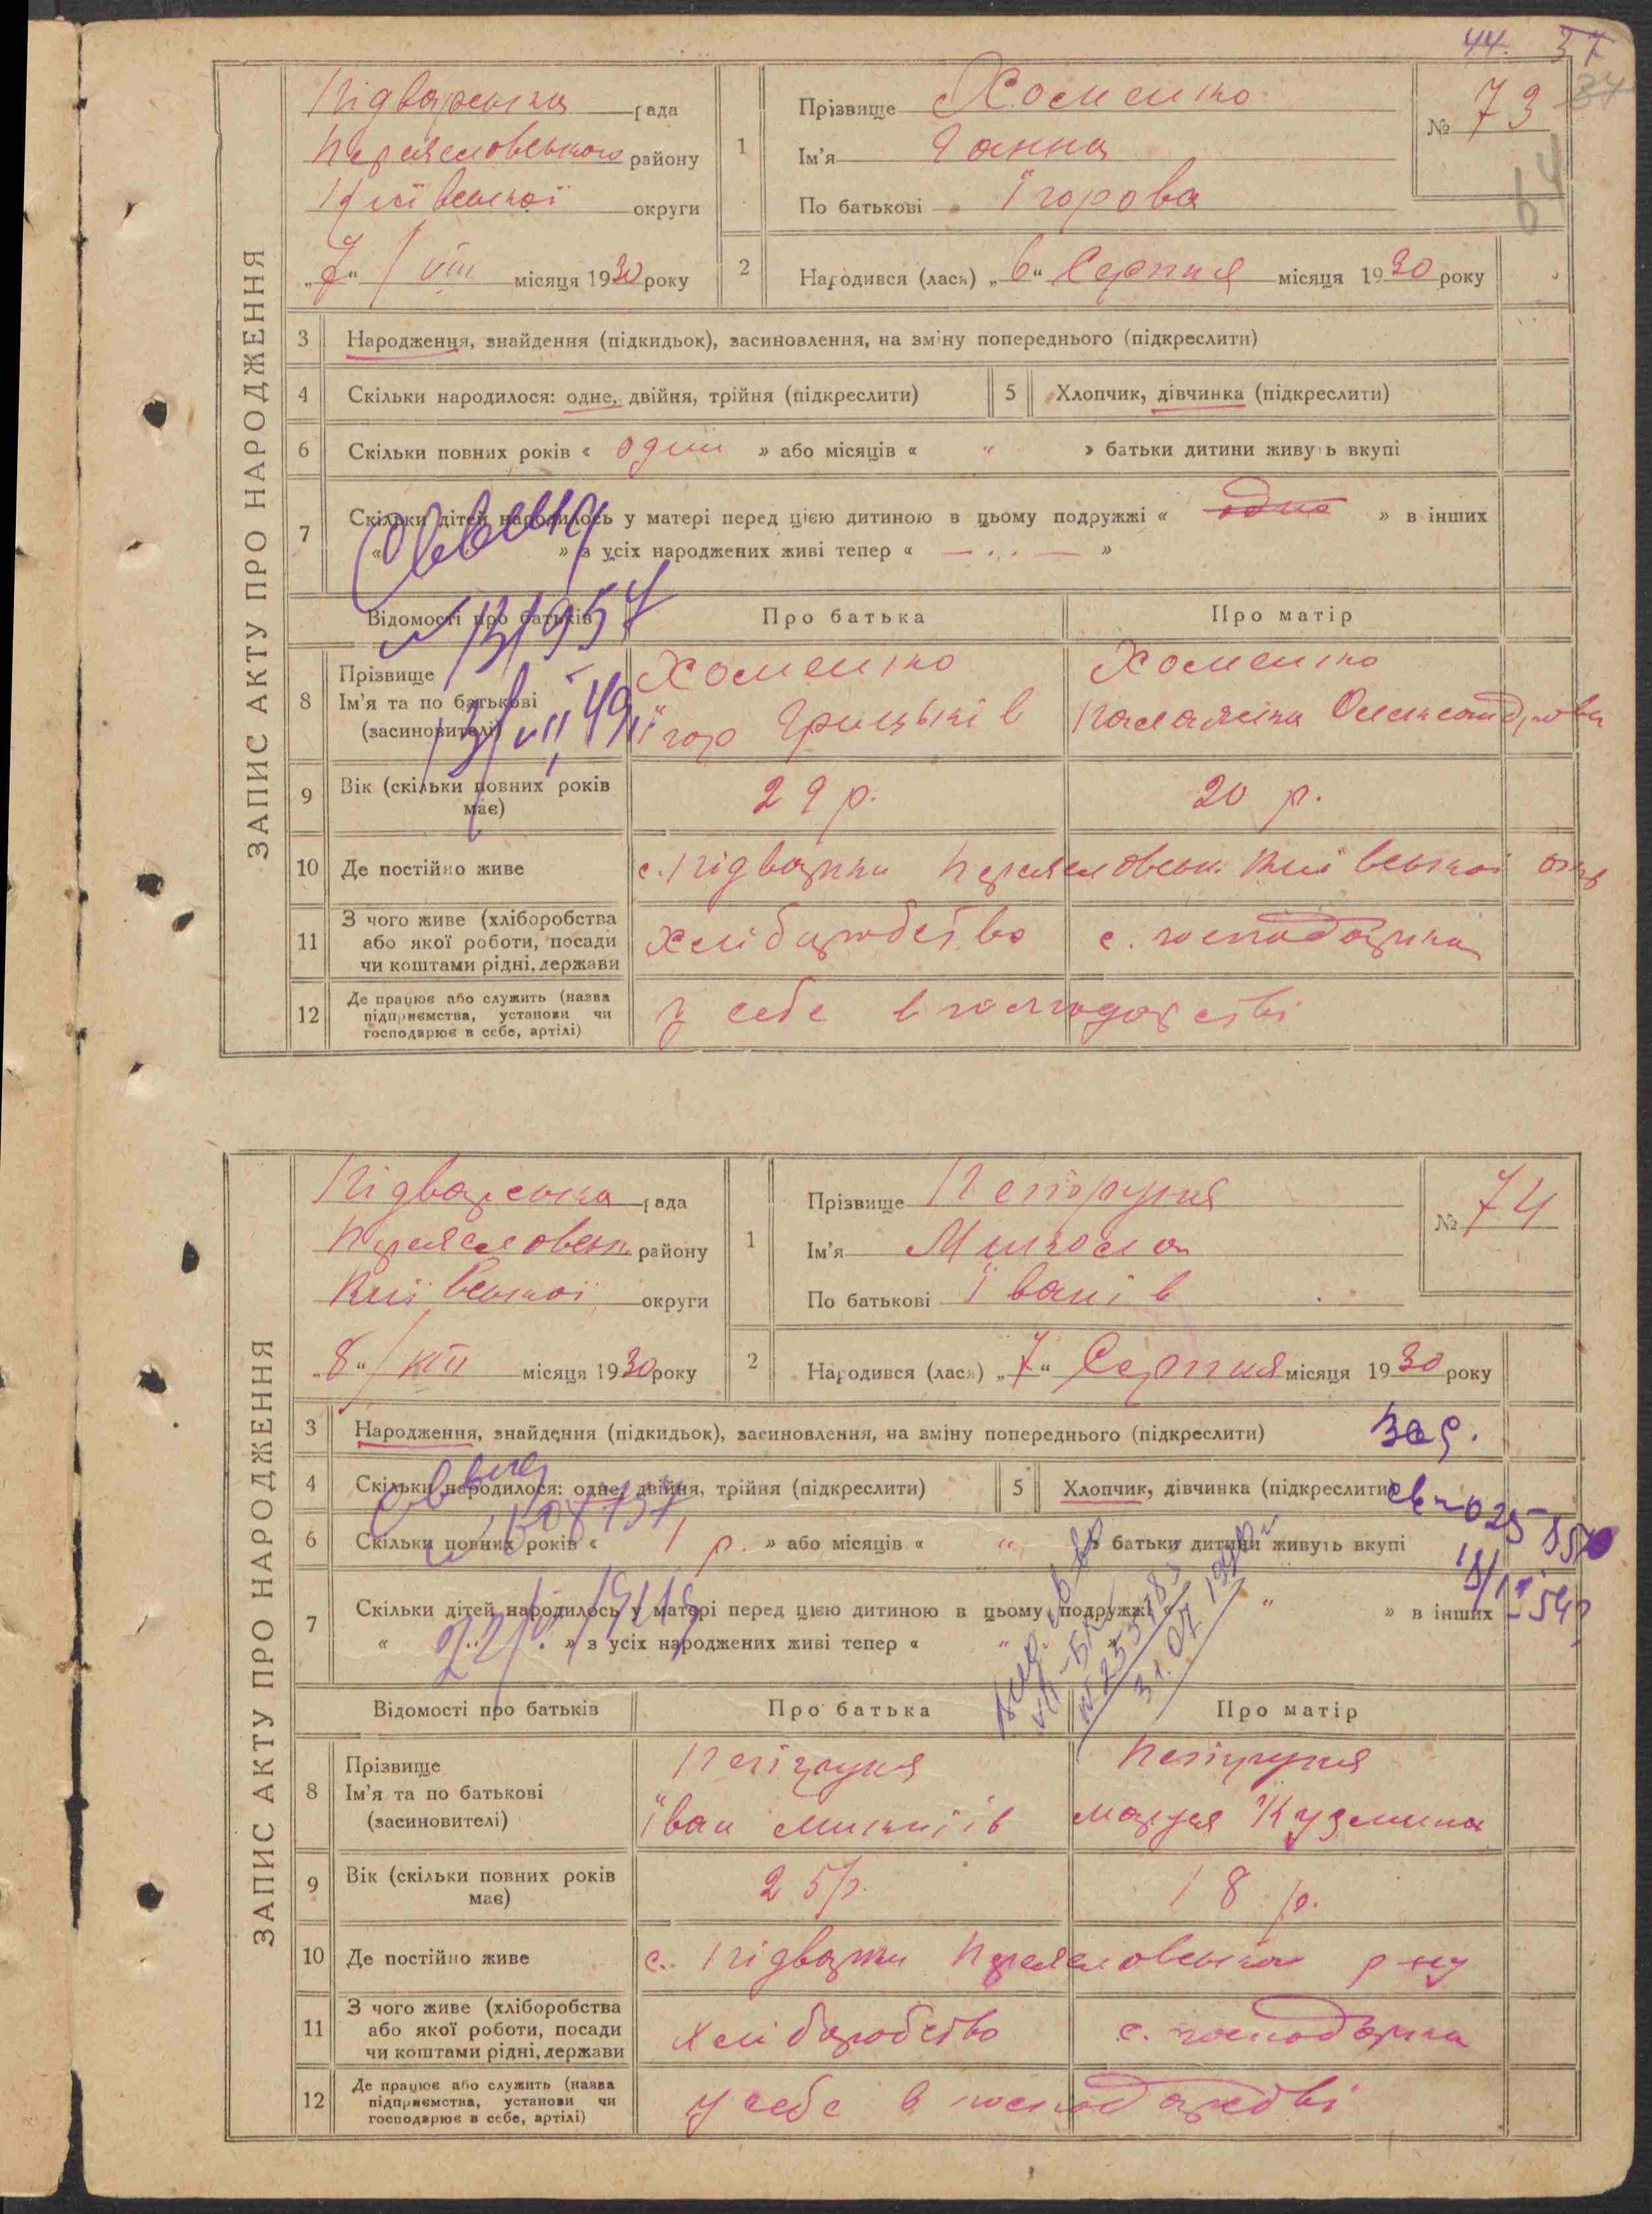 44. 37
34
ЗАПИС АКТУ ПРО НАРОДЖЕННЯ
Підварська рада
Переяславського району
Київської округи
„7“ / VIII місяця 1930 року
1 Прізвище Хоменко
Ім'я Ганна
По батькові Ігорова
№ 73
64
2 Народився (лась) „6“ Серпня місяця 1930 року
3 Народження, знайдення (підкидьок), засиновлення, на зміну попереднього (підкреслити)
4 Скільки народилося: одне, двійня, трійня (підкреслити) 5 Хлопчик, дівчинка (підкреслити)
6 Скільки повних років « один » або місяців « " » батьки дитини живуть вкупі
7 Скільки дітей народилось у матері перед цією дитиною в цьому подружжі « одно » в інших
« » з усіх народжених живі тепер « — . . — »
Відомості про батьків Про батька Про матір
8 Прізвище
Ім'я та по батькові
(засиновителі)
Хоменко
Ігор Грицьків
Хоменко
Олександрова
9 Вік (скільки повних років має) 29 р. 20 р.
10 Де постійно живе с. Підварки Переяславськ. Київської окр
11 З чого живе (хліборобства
або якої роботи, посади
чи коштами рідні, держави
Хліборобство с. господарка
12 Де працює або служить (назва
підприємства, установи чи
господарює в себе, артілі)
у себе в господарстві
ЗАПИС АКТУ ПРО НАРОДЖЕННЯ
Підварська рада
Переяславськ району
Київської округи
„8“ / VIII місяця 1930 року
1 Прізвище
Ім'я Микола
По батькові Іванів
№ 74
2 Народився (лася) „7“ Серпня місяця 1930 року
3 Народження, знайдення (підкидьок), засиновлення, на зміну попереднього (підкреслити)
4 Скільки народилося: одне, двійня, трійня (підкреслити) 5 Хлопчик, дівчинка (підкреслити)
6 Скільки повних років « 1 р. » або місяців « " » батьки дитини живуть вкупі
7 Скільки дітей народилось у матері перед цією дитиною в цьому подружжі « " » в інших
« " » з усіх народжених живі тепер « " »
Відомості про батьків Про батька Про матір
8 Прізвище
Ім'я та по батькові
(засиновителі)
Іван
Кузмина
9 Вік (скільки повних років має) 25 р. 18 р.
10 Де постійно живе с. Підварки Переяславського р-ну
11 З чого живе (хліборобства
або якої роботи, посади
чи коштами рідні, держави
Хліборобство с. господарка
12 Де працює або служить (назва
підприємства, установи чи
господарює в себе, артілі)
у себе в господарстві